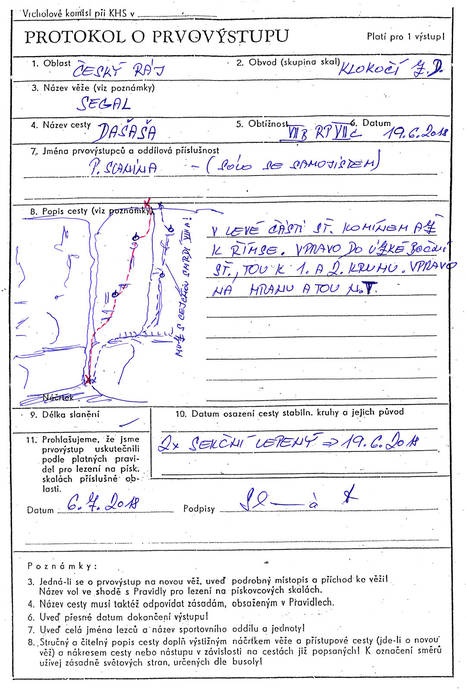 Vrcholové komisi při KHS v
PROTOKOL O PRVOVÝSTUPU
Platí pro 1 výstup!
1. Oblast ČESKÝ RÁJ
2. Obvod (skupina skal) KLOKOČÍ J.D.
3. Název věže (viz poznámky)
SEGAL
4. Název cesty DAŠAŠA
5. Obtížnost VIIB RP VIIc
6. Datum 19.6.2018
7. Jména prvovýstupců a oddílová příslušnost
P. SLANINA - (SÓLO SE SAMOJIŠTĚM)
8. Popis cesty (viz poznámky)
V LEVÉ ČÁSTI ST. KOMÍNEM AŽ
K ŘÍMSE. VPRAVO DO ÚZKÉ BOČNÍ
ST, TOU K 1. A 2. KRUHU. VPRAVO
NA HRANU A TOU N.V
MUŽ S CEJCHEM SMRDÍ VIIIA!
Náčrtek
9. Délka slanění
10. Datum osazení cesty stabiln. kruhy a jejich původ
2x SEKČNÍ LEPENÝ ⇒ 19.6.2018
11. Prohlašujeme, že jsme
prvovýstup uskutečnili
podle platných pravi-
del pro lezení na písk.
skalách příslušné ob-
lasti.
Datum 6.7.2018
Podpisy
Poznámky:
3. Jedná-li se o prvovýstup na novou věž, uveď podrobný místopis a příchod ke věži!
Název vol ve shodě s Pravidly pro lezení na pískovcových skalách.
4. Název cesty musí taktéž odpovídat zásadám, obsaženým v Pravidlech.
6. Uveď přesné datum dokončení výstupu!
7. Uveď celá jména lezců a název sportovního oddílu a jednoty!
8. Stručný a čitelný popis cesty doplň výstižným náčrtkem věže a přístupové cesty (jde-li o novou
věž) a nákresem cesty nebo nástupu v závislosti na cestách již popsaných! K označení směrů
užívej zásadně světových stran, určených dle busoly!